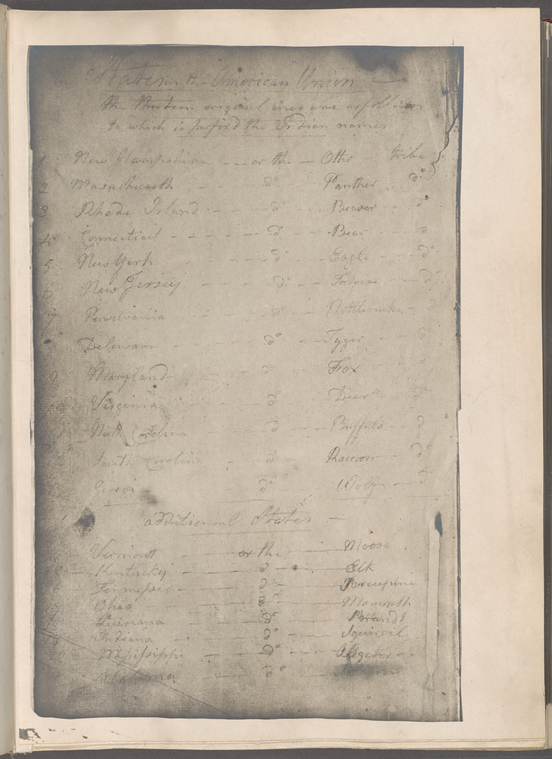 States in the American Union —
the thirteen original ones are as follows
to which is prefixed the Indian names
1 New Hampshire - or the - Otter - tribe
2 Massachusetts - - - do Panther do
3 Rhode Island - - - do - Beaver do
4 Connecticut - - - do - Bear do
5 New York - - do - Eagle - do
6 New Jersey - - do do
7 Pensylvania do Rattlesnake do
Delaware - - do - Tyger do
Maryland - - do Fox do
Virginia do Deer do
North Carolina do Buffalo - do
South Carolina do Raccoon - do
do do
additional States —
Vermont - or the - Moose
Kentucky - do - Elk
do Porcupine
Ohio do Mammoth
do
Indiana - do
Mississippi - do
Alabama - do